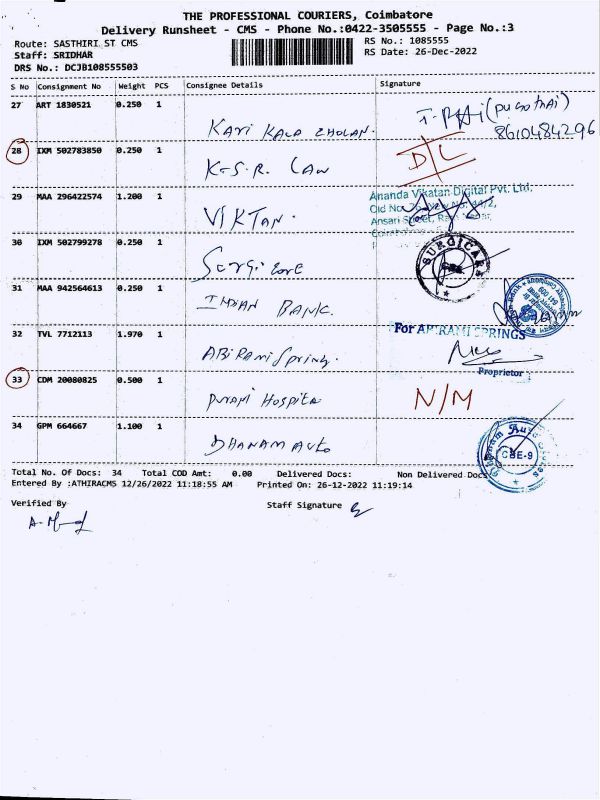 THE PROFESSIONAL COURIERS, Coimbatore
Delivery Runsheet - CMS - Phone No.:0422-3505555 - Page No.:3
Route: SASTHIRI ST CMS
Staff: SRIDHAR
DRS No.: DCJB108555503
RS No.: 1085555
RS Date: 26-Dec-2022
S No Consignment No Weight PCS Consignee Details Signature
27 ART 1830521 0.250 1
8610484296
28 IXM 502783850 0.250 1
K.S.R. Law
D/L
29 MAA 296422574 1.200 1
VIKTAN.
Ananda Vikatan Digital Pvt. Ltd.
30 IXM 502799278 0.250 1
SURGICARE
31 MAA 942564613 0.250 1
INDIAN BANK.
32 TVL 7712113 1.970 1
ABirami Spring.
For ABIRAMI SPRINGS
Proprietor
33 CDM 20080825 0.500 1
Hospital
N/M
34 GPM 664667 1.100 1
DHANAM AUTO
CBE-9
Total No. Of Docs: 34 Total COD Amt: 0.00 Delivered Docs: Non Delivered Docs
Entered By :ATHIRACMS 12/26/2022 11:18:55 AM Printed On: 26-12-2022 11:19:14
Verified By
Staff Signature